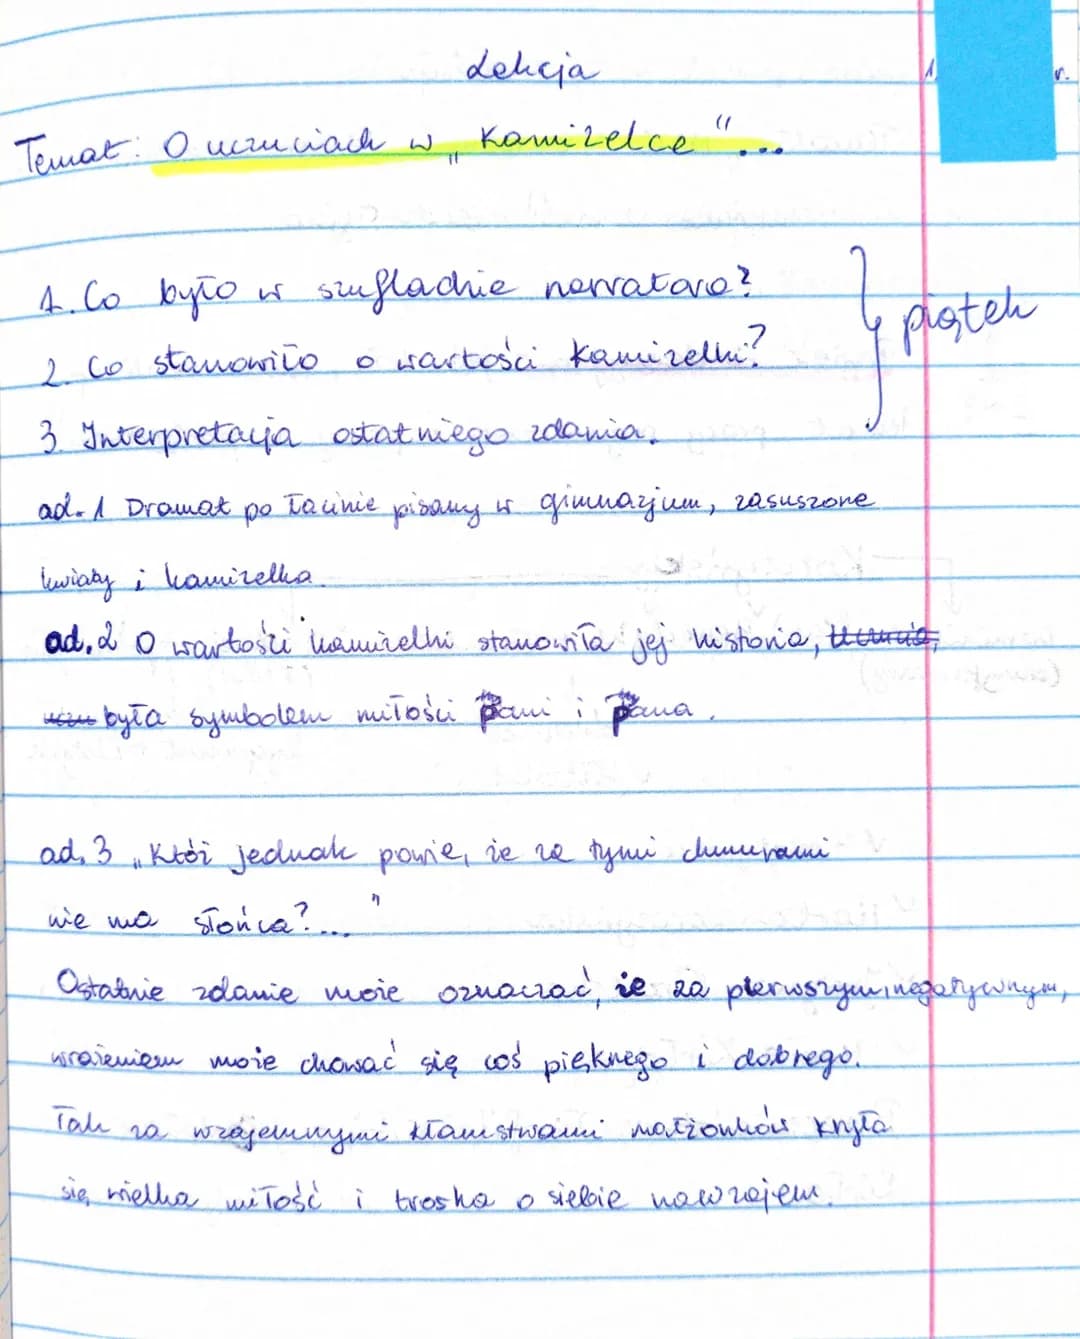 Lekcja
Temat: O uczuciach w „Kamizelce"...
1. Co było w szufladzie narratora?
2. Co stanowiło o wartości kamizelki?
} piątek
3. Interpretacja ostatniego zdania.
ad. 1 Dramat po łacinie pisany w gimnazjum, zasuszone
kwiaty i kamizelka.
ad. 2 O wartości kamizelki stanowiła jej historia,
była symbolem miłości Pani i Pana.
ad. 3 „Któż jednak powie, że za tymi chmurami
nie ma słońca?..."
Ostatnie zdanie może oznaczać, że za pierwszym, negatywnym,
wrażeniem może chować się coś pięknego i dobrego.
Tak za wzajemnymi kłamstwami małżonków kryła
się wielka miłość i troska o siebie nawzajem.